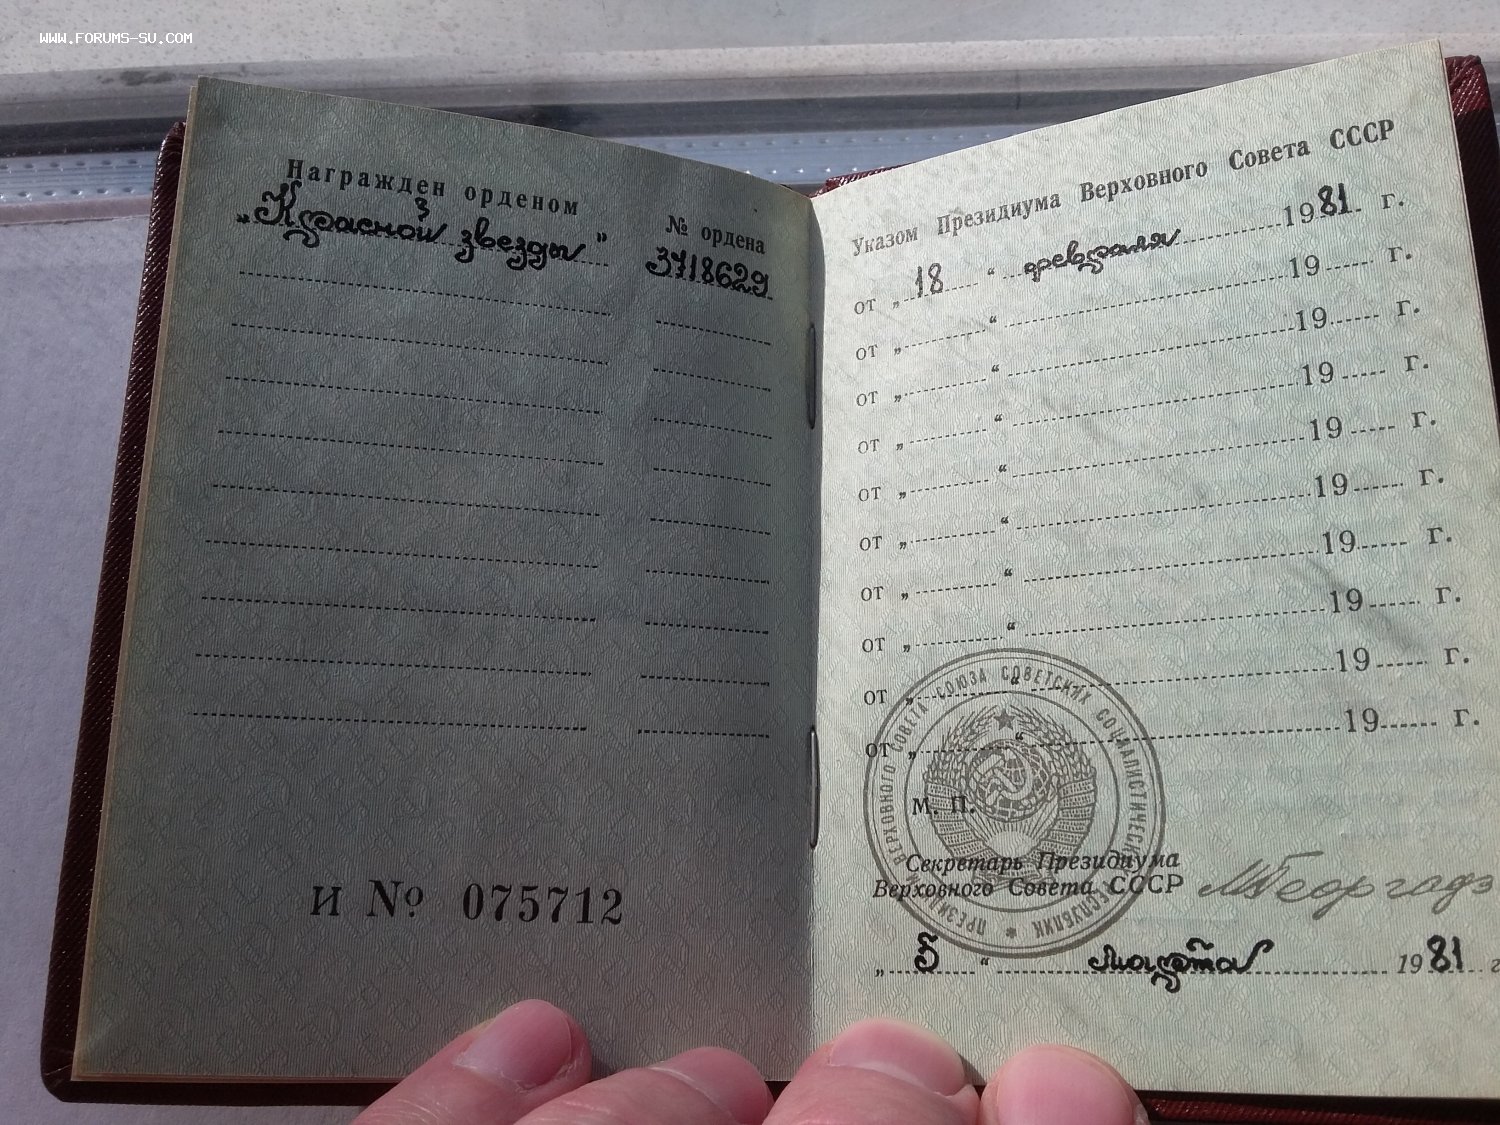 WWW.FORUMS-SU.COM
Награжден орденом
„Красной звезды”
№ ордена
3718629
И № 075712
Указом Президиума Верховного Совета СССР
от „ 18 “ февраля 1981 г.
от „ “ 19 г.
от „ “ 19 г.
от „ “ 19 г.
от „ “ 19 г.
от „ “ 19 г.
от „ “ 19 г.
от „ “ 19 г.
от „ “ 19 г.
от „ “ 19 г.
М. П.
ПРЕЗИДИУМ ВЕРХОВНОГО СОВЕТА СОЮЗА СОВЕТСКИХ СОЦИАЛИСТИЧЕСКИХ РЕСПУБЛИК
Секретарь Президиума
Верховного Совета СССР
МГеоргадз
„ 5 “ марта 1981 г